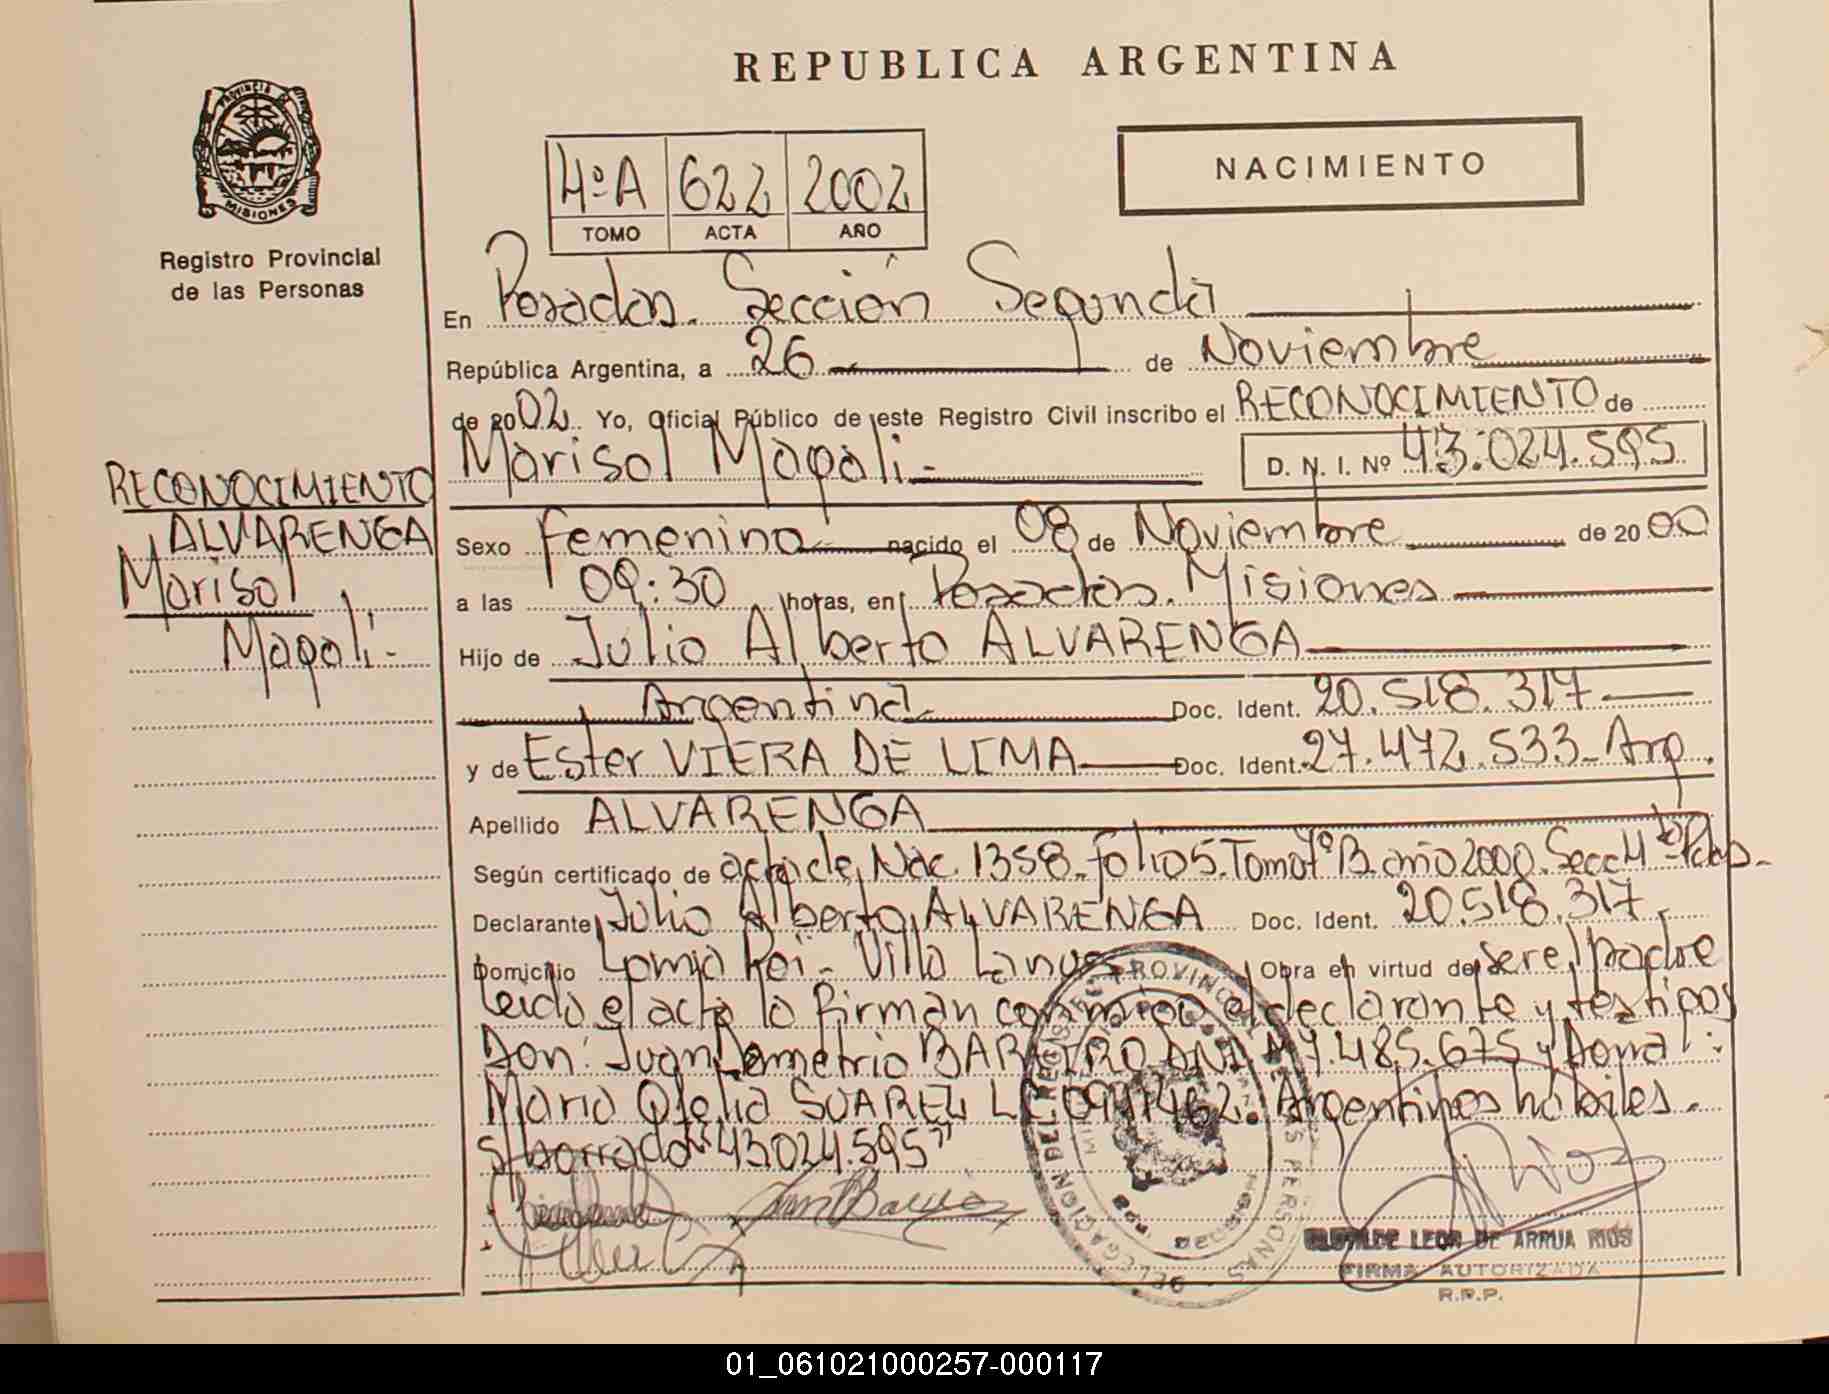 REPUBLICA ARGENTINA
PROVINCIA DE
MISIONES
Registro Provincial
de las Personas
4º A 622 2002
TOMO ACTA AÑO
NACIMIENTO
En Posadas. Sección Segunda
República Argentina, a 26 de Noviembre
de 2002 Yo, Oficial Público de este Registro Civil inscribo el RECONOCIMIENTO de
Marisol Magali.- D. N. I. Nº 43.024.595
RECONOCIMIENTO
ALVARENGA
Marisol
Magali.-
Sexo Femenino nacido el 08 de Noviembre de 2000
a las 09:30 horas, en Posadas. Misiones
Hijo de Julio Alberto ALVARENGA
Argentina Doc. Ident. 20.518.317
y de Ester VIERA DE LIMA Doc. Ident. 27.472.533- Arg.
Apellido ALVARENGA
Según certificado de acta de Nac. 1358. folio 5. Tomo 7º B año 2000. Secc 4ª
Declarante Julio Alberto ALVARENGA Doc. Ident. 20.518.317
Domicilio Lomja Poi - Villa Lanus Obra en virtud de ser el padre
Leido el acta la firman conmigo el declarante y testigos
Don: Juan Demetrio BAREIRO DNI M 7.485.675 y Doña:
Maria Ofelia SUAREZ LC Argentinos hábiles.
S/borrado "43024.595"
CLOTILDE LEOR DE ARRUA RIOS
FIRMA AUTORIZADA
R.P.P.
01_061021000257-000117